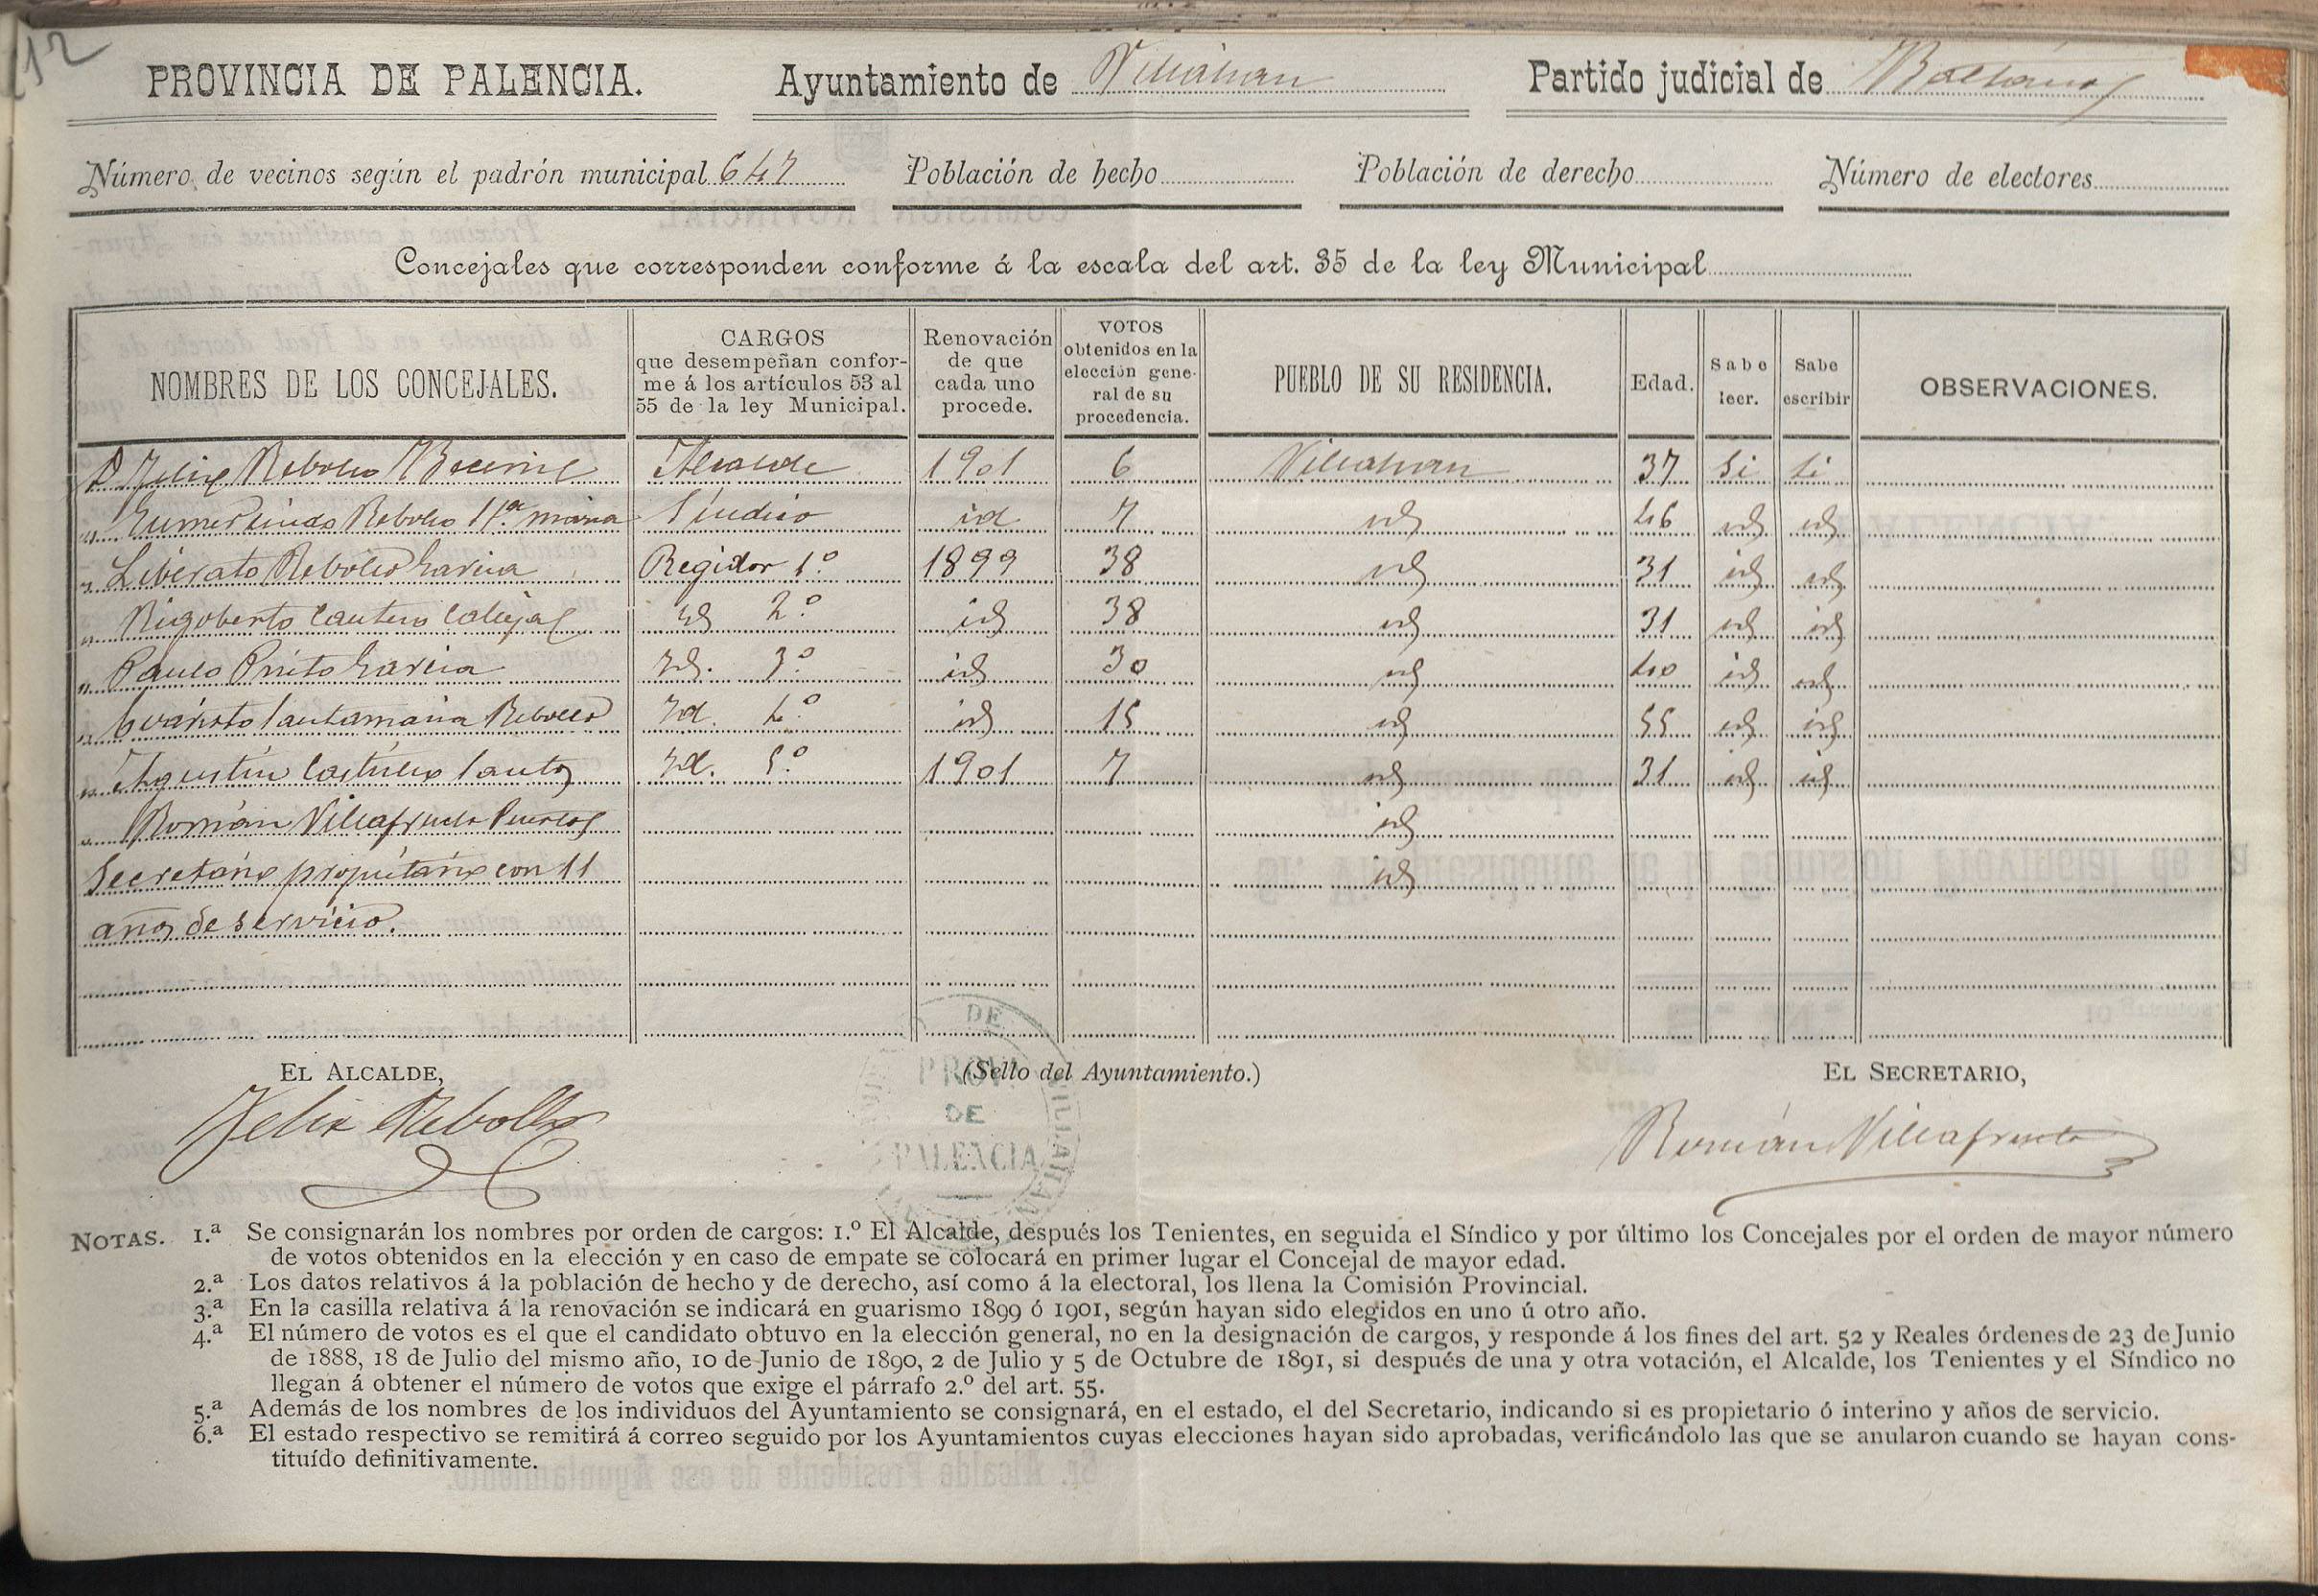 12
PROVINCIA DE PALENCIA. Ayuntamiento de Villahan Partido judicial de Baltanas
Número de vecinos según el padrón municipal 647 Población de hecho Población de derecho Número de electores
Concejales que corresponden conforme á la escala del art. 35 de la ley Municipal
NOMBRES DE LOS CONCEJALES.
CARGOS
que desempeñan confor-
me á los artículos 53 al
55 de la ley Municipal.
Renovación
de que
cada uno
procede.
VOTOS
obtenidos en la
elección gene-
ral de su
procedencia.
PUEBLO DE SU RESIDENCIA.
Edad.
Sabe
leer.
Sabe
escribir
OBSERVACIONES.
D Felix Rebollo Becerril Alcalde 1901 6 Villahan 37 Si Si
" Gumersindo Rebollo Sta maria Síndico id 7 id 46 id id
" Liberato Rebollo Garcia Regidor 1.º 1899 38 id 31 id id
" Rigoberto Cantero Calleja id 2.º id 38 id 31 id id
" Paulo Prieto Garcia Id. 3.º id 30 id 40 id id
" Evaristo Santamaria Rebollo Id. 4.º id 15 id 55 id id
" Agustín Castrillo Santos Id. 5.º 1901 7 id 31 id id
" Román Villafruela id
Secretario propietario con 11 id
años de servicio.
EL ALCALDE, (Sello del Ayuntamiento.) EL SECRETARIO,
Felix Rebollo
Román Villafruela
DE
PROV.
DE
PALENCIA
NOTAS. 1.ª Se consignarán los nombres por orden de cargos: 1.º El Alcalde, después los Tenientes, en seguida el Síndico y por último los Concejales por el orden de mayor número
de votos obtenidos en la elección y en caso de empate se colocará en primer lugar el Concejal de mayor edad.
2.ª Los datos relativos á la población de hecho y de derecho, así como á la electoral, los llena la Comisión Provincial.
3.ª En la casilla relativa á la renovación se indicará en guarismo 1899 ó 1901, según hayan sido elegidos en uno ú otro año.
4.ª El número de votos es el que el candidato obtuvo en la elección general, no en la designación de cargos, y responde á los fines del art. 52 y Reales órdenes de 23 de Junio
de 1888, 18 de Julio del mismo año, 10 de Junio de 1890, 2 de Julio y 5 de Octubre de 1891, si después de una y otra votación, el Alcalde, los Tenientes y el Síndico no
llegan á obtener el número de votos que exige el párrafo 2.º del art. 55.
5.ª Además de los nombres de los individuos del Ayuntamiento se consignará, en el estado, el del Secretario, indicando si es propietario ó interino y años de servicio.
6.ª El estado respectivo se remitirá á correo seguido por los Ayuntamientos cuyas elecciones hayan sido aprobadas, verificándolo las que se anularon cuando se hayan cons-
tituído definitivamente.